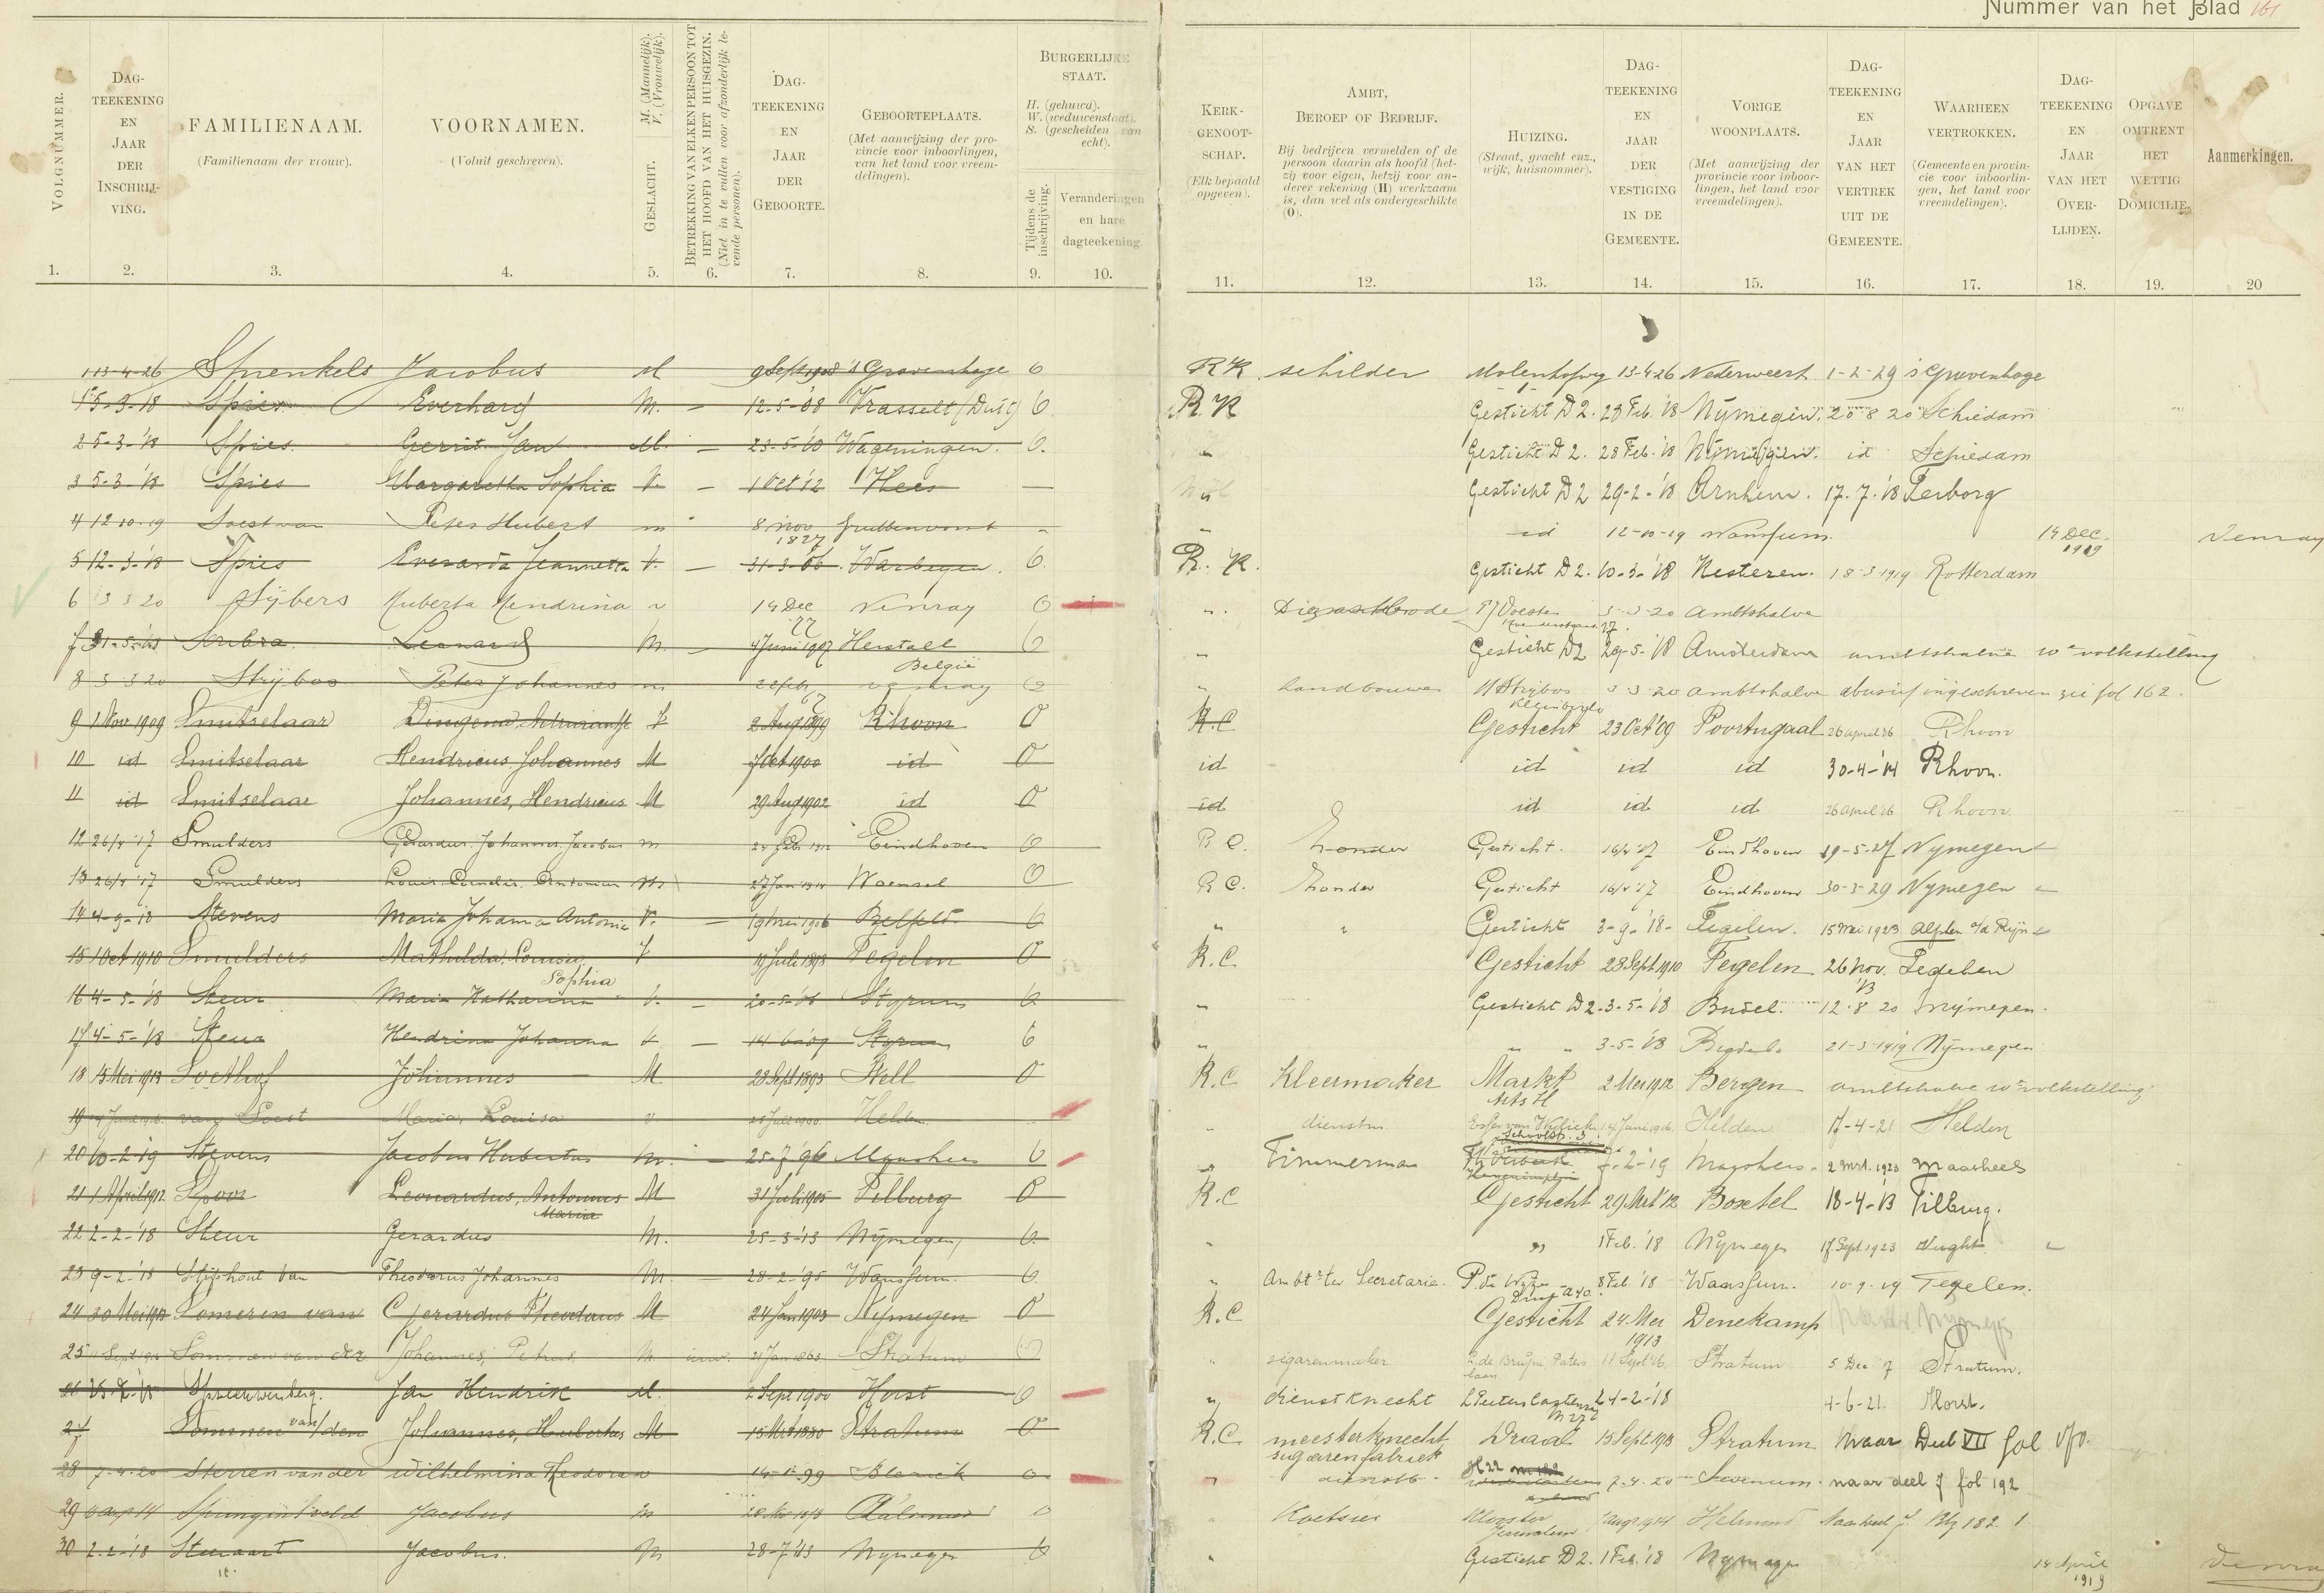 Nummer van het Blad 161
VOLGNUMMER.
DAG-
TEEKENING
EN
JAAR
DER
INSCHRIJ-
VING.
FAMILIENAAM.
(Familienaam der vrouw).
VOORNAMEN.
(Voluit geschreven).
GESLACHT. M. (Mannelijk). V. (Vrouwelijk).
BETREKKING VAN ELKEN PERSOON TOT
HET HOOFD VAN HET HUISGEZIN.
(Niet in te vullen voor afzonderlijk le-
vende personen).
DAG-
TEEKENING
EN
JAAR
DER
GEBOORTE.
GEBOORTEPLAATS.
(Met aanwijzing der pro-
vincie voor inboorlingen,
van het land voor vreem-
delingen).
BURGERLIJKE
STAAT.
H. (gehuwd).
W. (weduwenstaat).
S. (gescheiden van
echt).
Tijdens de
inschrijving.
Veranderingen
en hare
dagteekening.
KERK-
GENOOT-
SCHAP.
(Elk bepaald
opgeven).
AMBT,
BEROEP OF BEDRIJF.
Bij bedrijven vermelden of de
persoon daarin als hoofd (het-
zij voor eigen, hetzij voor an-
derer rekening (H) werkzaam
is, dan wel als ondergeschikte
(O).
HUIZING.
(Straat, gracht enz.,
wijk, huisnommer).
DAG-
TEEKENING
EN
JAAR
DER
VESTIGING
IN DE
GEMEENTE.
VORIGE
WOONPLAATS.
(Met aanwijzing der
provincie voor inboor-
lingen, het land voor
vreemdelingen).
DAG-
TEEKENING
EN
JAAR
VAN HET
VERTREK
UIT DE
GEMEENTE.
WAARHEEN
VERTROKKEN.
(Gemeente en provin-
cie voor inboorlin-
gen, het land voor
vreemdelingen).
DAG-
TEEKENING
EN
JAAR
VAN HET
OVER-
LIJDEN.
OPGAVE
OMTRENT
HET
WETTIG
DOMICILIE.
Aanmerkingen.
1. 2. 3. 4. 5. 6. 7. 8. 9. 10. 11. 12. 13. 14. 15. 16. 17. 18. 19. 20
13-4-26 Sprenkels Jacobus M 9 Sept 1908 's Gravenhage O RK schilder Molenhofweg 13-4-26 Nederweert 1-2-29 's Gravenhage
1 5-3-'18 Spies Everhard M. - 12-5-'08 Vrasselt (Duits) O. RK Gesticht D2. 28 Feb. '18 Nymegen. 20 8 20 Schiedam
2 5-3-'18 Spies. Gerrit Jan M. - 23-5-'10 Wageningen. O. " Gesticht D2. 28 Feb. '18 Nymegen. id Schiedam
3 5-3-'18 Spies Margaretha Sophia V. - 1 Oct '12 Hees - Gesticht D2 29-2-'18 Arnhem. 17.7.'18 Terborg
4 12 10-19 Soest van Peter Hubert m 8 nov 1827 Grubbenvorst " id 12-10-19 Wanssum. 14 Dec. 1919 Venray
5 12-3-'18 Spies Everarda Jeannetta V. - 31-3-'06. O. R.K. Gesticht D2. 10-3-'18 Kesteren. 18-3 1919 Rotterdam
6 3 3 20 Huberta Hendrina v 14 Dec Venray O " 3-3-20 Ambtshalve
7 31-5-'18 Leonard M. - 4 Juni 1907 Herstall België O " Gesticht D2 29-5-'18 Amsterdam ambtshalve 10e volkstelling
8 3 3 20 Strijbos Peter Johannes m venray O " landbouwer 3-3-20 ambtshalve abusief ingeschreven zie fol 162.
9 1 Nov 1909 Smitselaar V 2 Aug 1899 Rhoon O R.C Gesticht 23 Oct '09 Poortugaal 26 april '16 Rhoon
10 id Smitselaar Hendricus Johannes M 7 Oct 1900 id O id id id id 30-4-'14 Rhoon.
11 id Smitselaar Johannes, Hendricus M 29 Aug 1902 id O id id id id 26 april '16 Rhoon
12 26/4 '17 Smulders Gerardus Johannes Jacobus m Eindhoven O R C. zonder Gesticht. 16/4 '17 Eindhoven 19-5-27 Nymegen
13 26/4 '17 Smulders Louis Cornelis Antonius m 27 Jan 1914 Woensel O R C. zonder Gesticht 16/4 '17 Eindhoven 30-3-29 Nymegen
14 4-9-'18 Stevens Maria Johanna Antonia V. - 19 Mei 1906 Belfeld O " " Gesticht 3-9-'18- Tegelen. 15 Mei 1923 Alphen a/d Rijn
15 1 Oct 1910 Smulders Mathilda, Louisa, Sophia V Juli 1898 Tegelen O R.C. Gesticht 28 Sept 1910 Tegelen 26 Nov. '13 Tegelen
16 4-5-'18 Steur Maria Katharina V. - 20-5-'06 Styrum O " Gesticht D2. 3-5-'18 Budel. 12-8 20 Nymegen.
17 4-5-'18 Steur Hendrina Johanna V. - Styrum O " " " 3-5-'18 Budel. 21-3-1919 Nymegen
18 15 Mei 1913 Soethof Johannes M 28 Sept 1893 Stell O R.C Kleermaker Markt 2 Mei 1912 Bergen ambtshalve 10e volkstelling
19 van Soest Maria, Louisa v Helden " dienstm 14 Juni 1916 Helden 17-4-21 Helden
20 10-2-'19 Stevens Jacobus Hubertus M. - 25-7-'96 Maashees O " Timmerman Schoolstr. 3 7-2-'19 Maashees 2 Mrt. 1923 Maashees
21 1 April 1912 Spoor Leonardus, Antonius Maria M 31 Juli 1905 Tilburg O R.C Gesticht 29 Mrt '12 Boxtel 18-4-'13 Tilburg.
22 2-2-'18 Steur Gerardus M. 25-3-'13 Nymegen O " " 1 Feb. '18 Nymegen 17 Sept. 1923 Vught
23 9-2-'18 Stijphout van Theodorus Johannes M. - 28-2-'95 Wanssum. O. " Ambtr ter Secretarie. 8 Feb '18 Wanssum. 10-9-19 Tegelen.
24 30 Mei 1913 Someren van Gerardus Theodorus M 24 Jan 1903 Nijmegen O R.C Gesticht 24 Mei 1913 Denekamp
25 11 Sept 1916 Sommen van der Johannes, Petrus, M. 21 Jan 1865 Stratum " sigarenmaker 11 Sept '16 Stratum 5 Dec 17 Stratum.
26 Spreeuwenberg. Jan Hendrik M. 2 Sept 1900 Horst O " dienstknecht 24-2-'18 4-6-21. Horst.
27 Sommen van den Johannes, Hubertus M 15 Mrt 1880 Stratum O R.C. meesterknecht sigarenfabriek 15 Sept. 1913 Stratum Naar Deel VII fol
28 7-4-20 Sterren van der Wilhelmina Theodora v Blerick O " dienstb. 7-4-20 Sevenum. naar deel 7 fol 192
29 Jacobus m O " Koetsier Klooster Jerusalem 1 aug 1914 Helmond Naar deel 7 Blz 182.
30 2.2-'18 Steenaart Jacobus. M 28-7-'13 Nymegen O " Gesticht D2. 1 Feb. '18 Nymegen 14 April 1919 Venray